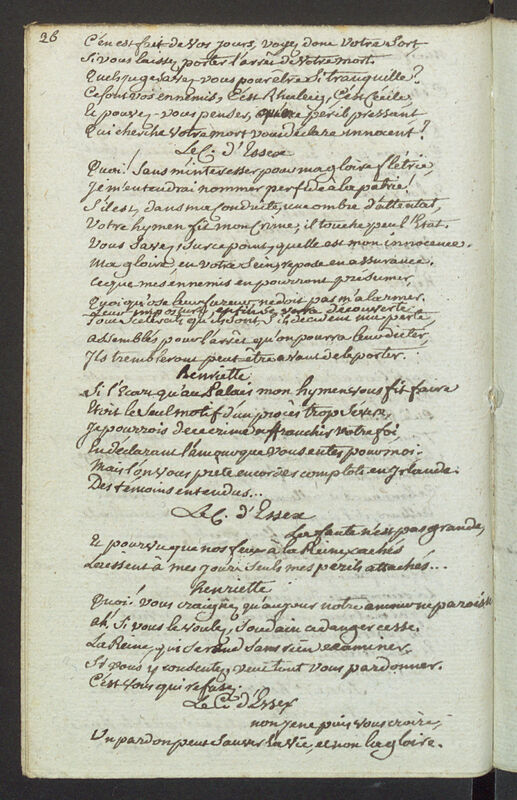 26
C'en est fait de vos jours, voyez donc votre sort,
Si vous laissez porter l'arrêt de votre mort.
Quels juges avez vous pour etre si tranquille?
Ce sont vos ennemis, C'est Rhaleig, C'est Cécile,
Et pouvez-vous penser, qu'en ce peril pressant
Qui cherche votre mort vous déclare innocent?
Le C. d'Essex
Quoi! Sans m'interesser pour ma gloire flétrie,
Je m'entendrai nommer perfide à la patrie!
S'il est, dans ma Conduite, une ombre d'attentat,
Votre hymen fit mon Crime; il touche peu l'Etat.
Vous savez, sur ce point, quelle est mon innocence.
Ma gloire, en votre Sein, repose en assurance.
Ce que mes ennemis en pourront présumer,
Quoi qu'ose leur fureur, ne doit pas m'alarmer.
Leur imposture enfin se verra découverte,
Tous scelerats qu'ils sont s'ils décident ma perte
Assemblés pour l'arrêt qu'on pourra leur dicter,
Ils trembleront peut-etre avant de le porter.
Henriette
Si l'Ecart qu'au Palais mon hymen vous fit faire
Etoit le Seul motif d'un procès trop Severe,
Je pourrois de ce crime affranchir votre foi,
En déclarant l'amour que vous eutes pour moi.
Mais l'on vous prete encor des complots en Irlande.
Des témoins entendus...
Le C. d'Essex
La faute n'est pas grande,
Et pourvu que nos feux à la Reine cachés
Laissent à mes jours seuls mes perils attachés...
Henriette
Quoi! vous craignez qu'au jour notre amour ne paroisse
Ah, Si vous le voulez, Soudain ce danger cesse.
La Reine, qui se rend sans rien examiner,
Si vous y consentez, veut tout vous pardonner.
C'est vous qui refusez.
Le C. d'Essex
non je ne puis vous croire,
Un pardon peut sauver la vie, et non la gloire.